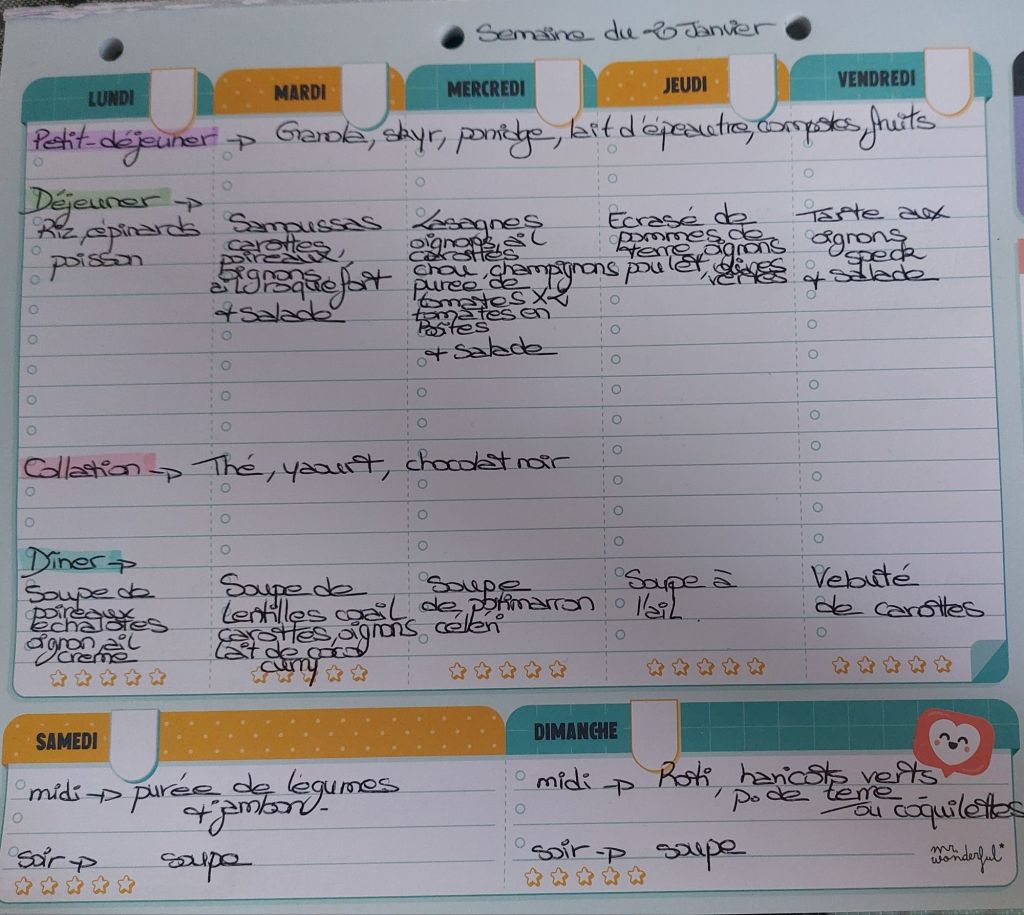 Semaine du 20 Janvier
LUNDI
MARDI
MERCREDI
JEUDI
VENDREDI
Petit-déjeuner → Granola, skyr, porridge, lait d'épeautre, compotes, fruits
Déjeuner →
Riz, épinards
poisson
Samoussas
carottes
poireaux,
oignons
à la roquefort
+ salade
Lasagnes
oignons, ail
carottes
chou, champignons
purée de
tomates x2
tomates en
boîtes
+ salade
Ecrasé de
pommes de
terre, oignons
poulet, olives
vertes
Tarte aux
oignons
speck
+ salade
Collation → Thé, yaourt, chocolat noir
Dîner →
Soupe de
poireaux
échalotes
oignon, ail
crème
Soupe de
lentilles corail
carottes, oignons
lait de coco
curry
Soupe
de potimarron
céleri
Soupe à
l'ail
Velouté
de carottes
SAMEDI
midi → purée de légumes
+ jambon
soir → soupe
DIMANCHE
midi → Roti, haricots verts
p. de terre
ou coquilettes
soir → soupe
mr.
wonderful*